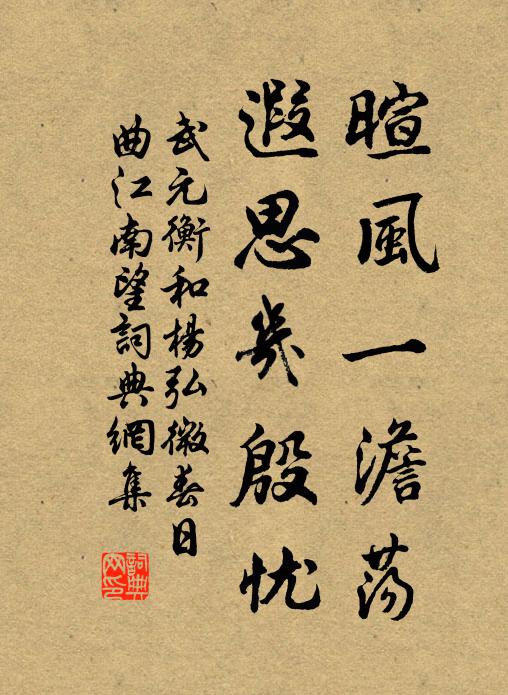 暄風一澹蕩
遐思幾殷忧
武元衡和楊弘微春日
曲江南望詞典網集
詞典
网印